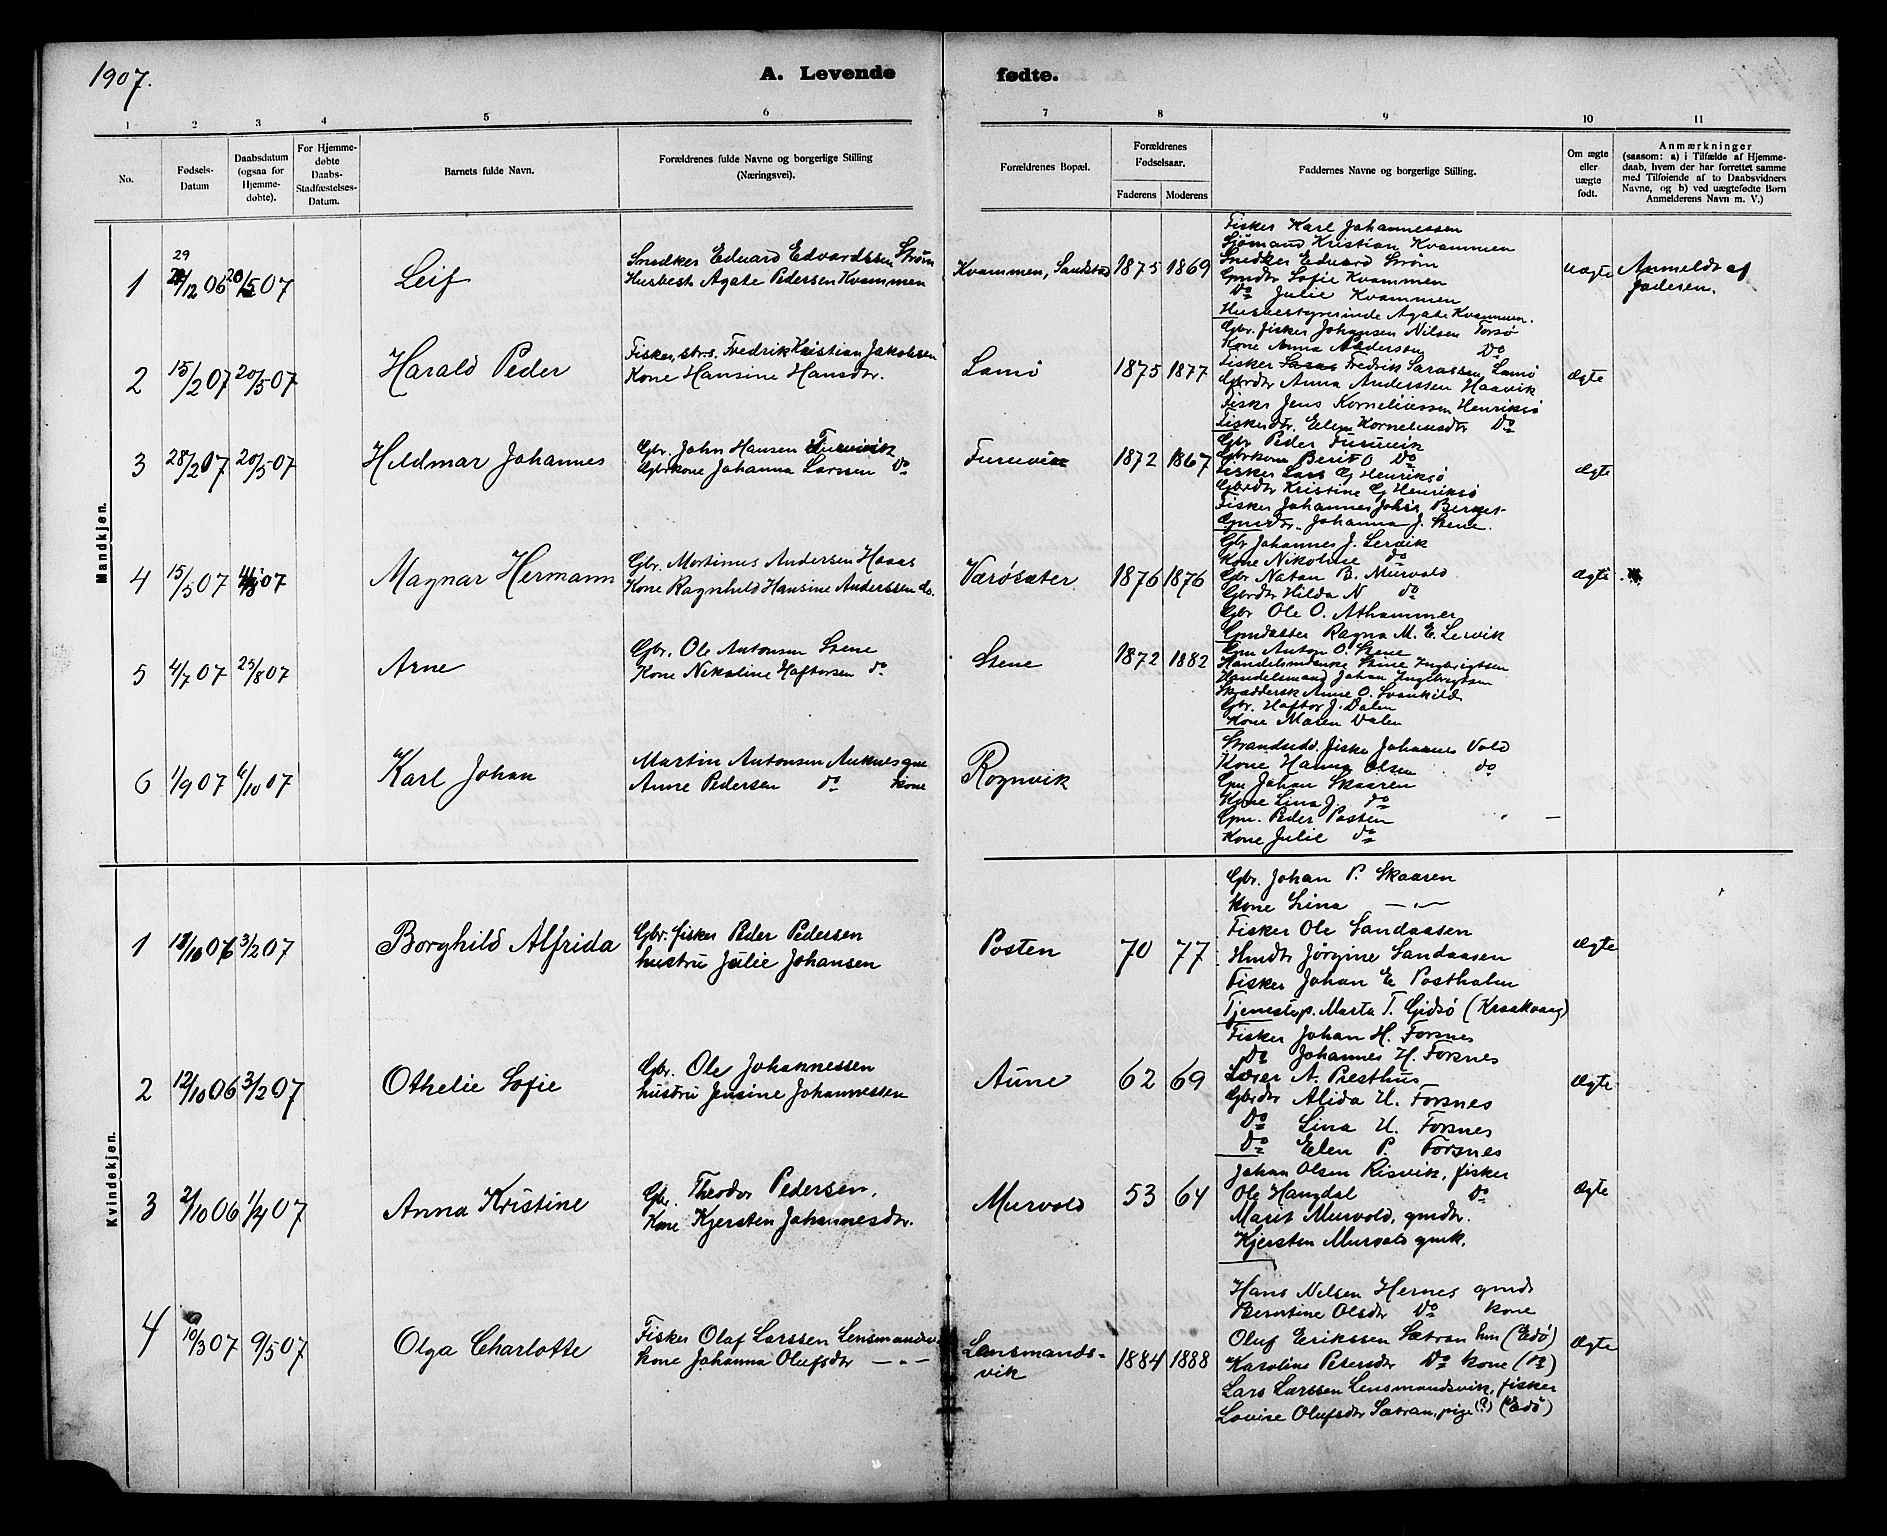 1907.
A. Levende fødte.
1 2 3 4 5 6 7 8 9 10 11
No.
Fødsels-
Datum
Daabsdatum
(ogsaa for
Hjemme-
døbte).
For Hjemme-
døbte
Daabs-
Stadfæstelses-
Datum.
Barnets fulde Navn.
Forældrenes fulde Navne og borgerlige Stilling
(Næringsvei).
Forældrenes Bopæl.
Forældrenes
Fødselsaar.
Faderens Moderens
Faddernes Navne og borgerlige Stilling.
Om ægte
eller
uægte
født.
Anmærkninger
(saasom: a) i Tilfælde af Hjemme-
daab, hvem der har forrettet samme
med Tilføiende af to Daabsvidners
Navne, og b) ved uægtefødte Børn
Anmelderens Navn m. V.)
Mandkjøn.
1 29/12 06 20/5 07 Leif
Snedker Eduard Edvardssen Strøm
Husbest Agate Pedersen Kvammen
Kvammen, Sandstad 1875 1869
Fisker Karl Johannessen
Sjømand Kristian Kvammen
Snedker Eduard Strøm
Gmdtr Sofie Kvammen
Do Julie Kvammen
Husbestyrerinde Agate Kvammen.
uægte
Anmeldt af
faderen.
2 15/2 07 20/5 07 Harald Peder
Fisker, strs. Fredrik Kristian Jakobsen
Kone Hansine Hansdtr.
Lamø 1875 1877
Gbr. fisker Johansen Nilsen Torsø
Kone Anna Andersen Do
Fisker Fredrik Larassen, Lamø
Gbrdtr Anna Anderssen Haavik
Fisker Jens Korneliussen Henriksø
Fiskerdtr. Elen Korneliusdtr Do
Ægte
3 28/2 07 20/5 07 Hildmar Johannes
Gbr. John Hansen Furuvik
Gbrkone Johanna Larssen Do
Furuvik 1872 1867
Gbr Peder Furuvik
Gbrkone Berit O Do
Fisker Lars G Henriksø
Gbrdtr Kristine G Henriksø
Fisker Johannes Johs. Berget
Gmdtr. Johanna J. Stene.
Ægte
4 15/5 07 07 Magnar Hermann
Gbr. Martinus Andersen Haaas
Kone Ragnhild Hansine Anderssen do.
Værøsæter 1876 1876
Gbr Johannes J. Lervik
Kone Nikoline do
Gbr Natan B. Murvold
Gbrdtr Hilda N do
Gbr Ole O. Athammer
Gmdatter Ragna M. E. Lervik
Ægte
5 4/7 07 25/8 07 Arne
Gbr. Ole Antonsen Stene
Kone Nikoline Haftorsen do
Stene 1872 1882
Gm Anton O. Stene
Handelsmdenke Stine Ingbrigtsen
Handelsmand Johan Ingebrigtsen
Skræddersk Anne O. Svankild
Gbr. Haftor J. Dalen
Kone Maren Dalen
6 1/9 07 6/10 07 Karl Johan
Martin Antonsen Auknes gm
Anne Pedersen do kone
Rognvik
Strandsidd. fisker Johannes Vold
Kone Hanna Olsen do
Gm Johan Skaaren
Kone Lina J. do
Gm. Peder Posten
Kone Julie do
Kvindekjøn.
1 18/10 06 3/2 07 Borghild Alfrida
Gbr. fisker Peder Pedersen
hustru Julie Johansen
Posten 70 77
Gbr. Johan P. Skaaren
Kone Lina — " —
Fisker Ole Sandaasen
Hmdtr Jørgine Sandaasen
Fisker Johan E Postholm
Tjenestep. Marta T. Gidsø (Kraakvaag)
Ægte
2 12/10 06 3/2 07 Othelie Sofie
Gbr. Ole Johannessen
hustru Jensine Johannessen
Aune 62 69
Fisker Johan H. Forsnes
Do Johannes H. Forsnes
Lærer A. Presthus
Gbrdtr Alida U. Forsnes
Do Lina U. Forsnes
Do Elen P. Forsnes
Ægte
3 2/10 06 1/4 07 Anna Kristine
Gbr. Theodor Pedersen,
Kone Kjersten Johannesdtr.
Murvold 53 64
Johan Olsen Risvik, fisker
Ole Hangdal do
Marit Murvold, gmdtr.
Kjersten Murvold gmk.
Ægte
4 10/3 07 9/5 07 Olga Charlotte
Fisker Olaf Larssen Lensmandsv.
Kone Johanna Olufsdtr — " —
Lensmands-
vik 1884 1888
Hans Nilsen Hernes gmd
Berntine Olsdtr Do kone
Oluf Erikssen Sætran hm (Edø)
Karoline Petersdtr Do kone (Do)
Lars Larssen Lensmandsvik, fisker
Lovise Olufsdtr Sætran, pige (?) (Edø)
Ægte